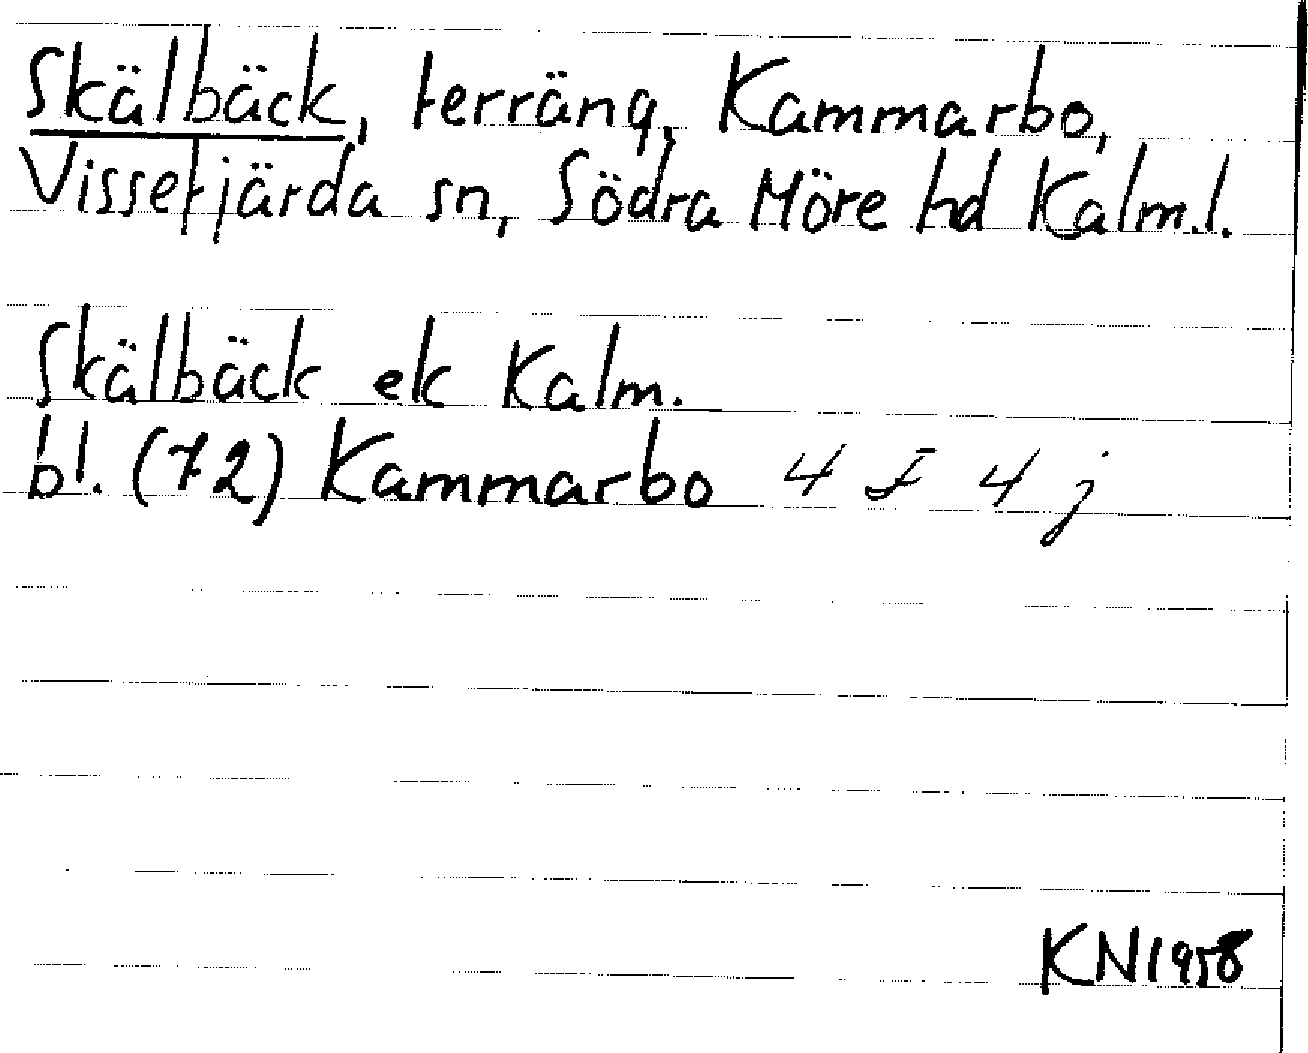 Skälbäck, terräng, Kammarbo,
Vissefjärda sn, Södra Möre hd Kalm.l.
Skälbäck ek Kalm.
bl. (72) Kammarbo 4 F 4 j
KN1958